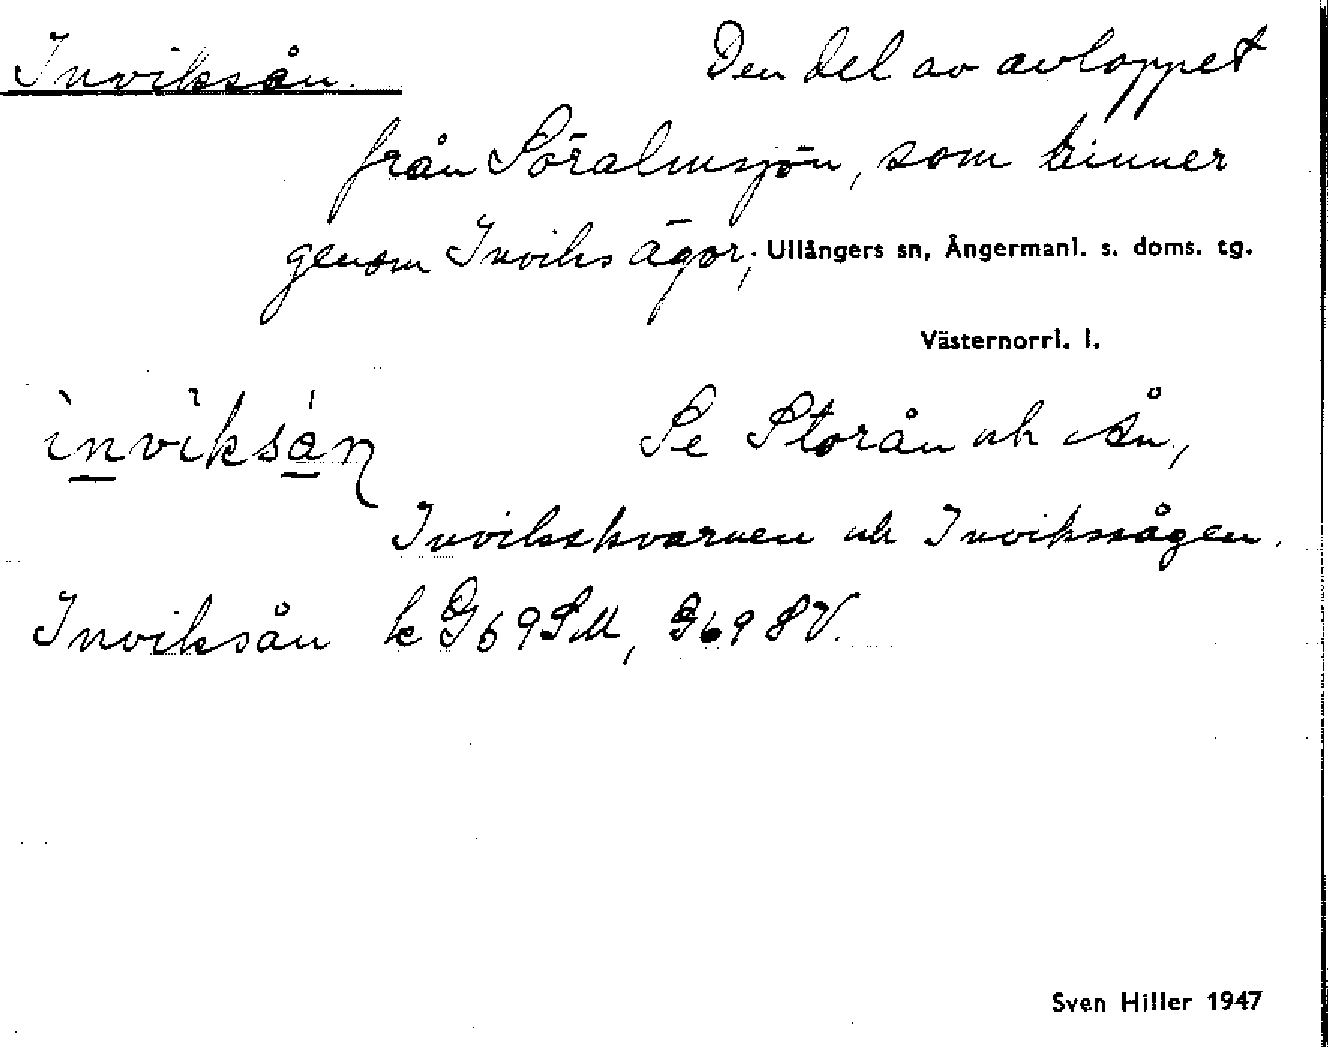 Inviksån. Den del av avloppet
från Söralmsjön, som rinner
genom Inviks ägor; Ullångers sn, Ångermanl. s. doms. tg.
Västernorrl. l.
ìnvìksán Se Storån och Ån,
Invikskvarnen och Invikssågen.
Inviksån k G69SM, G69SV.
Sven Hiller 1947